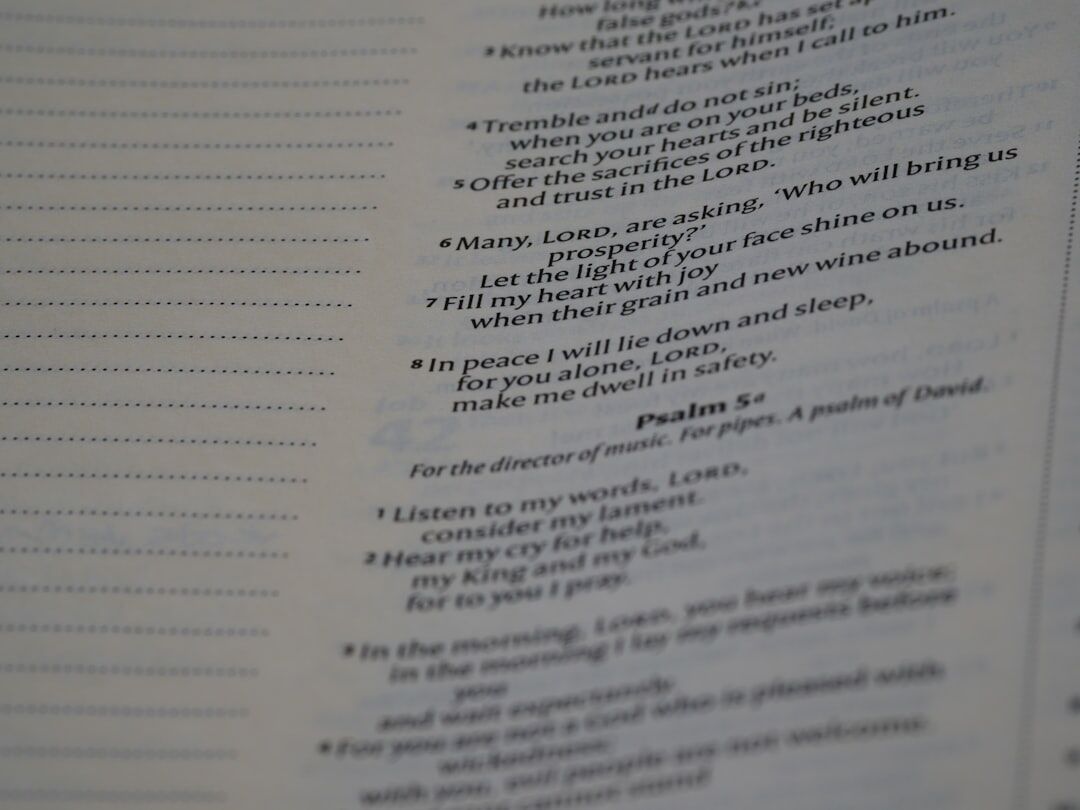 How long
false gods?
3 Know that the LORD has set
servant for himself;
the LORD hears when I call to him.
4 Tremble andᵈ do not sin;
when you are on your beds,
search your hearts and be silent.
5 Offer the sacrifices of the righteous
and trust in the LORD.
6 Many, LORD, are asking, ‘Who will bring us
prosperity?’
Let the light of your face shine on us.
7 Fill my heart with joy
when their grain and new wine abound.
8 In peace I will lie down and sleep,
for you alone, LORD,
make me dwell in safety.
Psalm 5ᵃ
For the director of music. For pipes. A psalm of David.
1 Listen to my words, LORD,
consider my lament.
2 Hear my cry for help,
my King and my God,
for to you I pray.
3 In the morning, LORD, you hear my voice;
in the morning I lay my requests before
you
and wait expectantly.
4 For you are not a God who is pleased with
wickedness;
with you, evil people are not welcome.